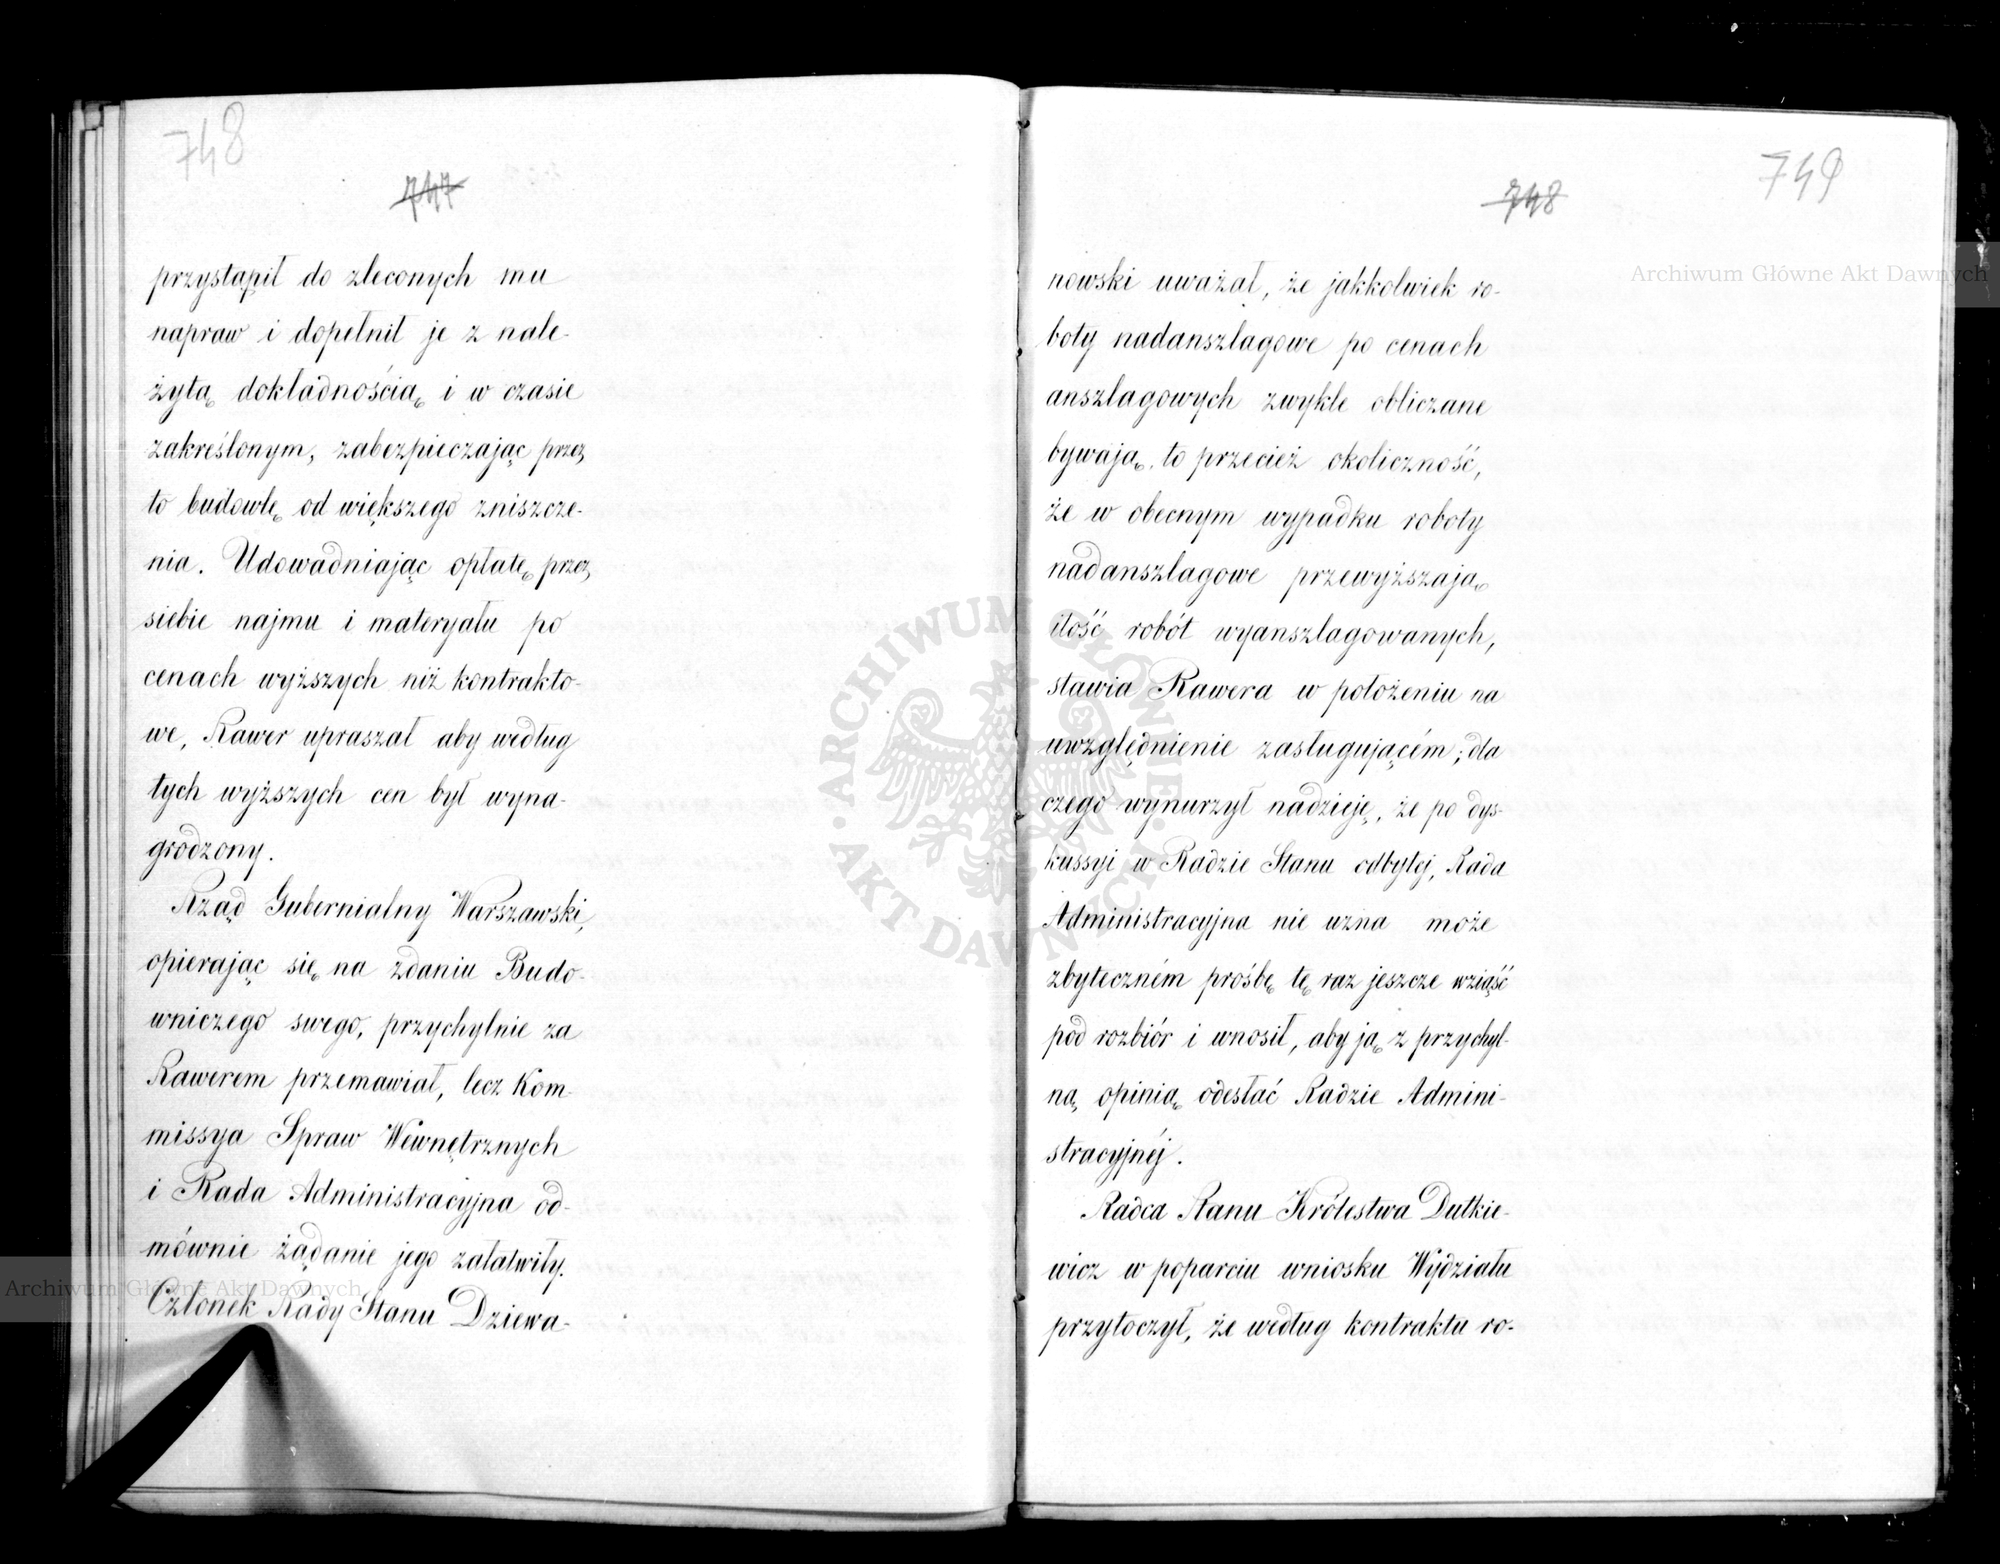 748
747
przystąpił do zleconych mu
napraw i dopełnił je z nale-
żytą dokładnością i w czasie
zakreślonym, zabezpieczając przez
to budowlę od większego zniszcze-
nia. Udowadniając opłatę przez
siebie najmu i materyału po
cenach wyższych niż kontrakto-
we, Rawer upraszał aby według
tych wyższych cen był wyna-
grodzony.
Rząd Gubernialny Warszawski,
opierając się na zdaniu Budo-
wniczego swego, przychylnie za
Rawerem przemawiał, lecz Kom-
missya Spraw Wewnętrznych
i Rada Administracyjna od-
mównie żądanie jego załatwiły.
Członek Rady Stanu Dziewa-
749
748
nowski uważał, że jakkolwiek ro-
boty nadanszlagowe po cenach
anszlagowych zwykle obliczane
bywają, to przecież okoliczność,
że w obecnym wypadku roboty
nadanszlagowe przewyższają
ilość robót wyanszlagowanych,
stawia Rawera w położeniu na
uwzględnienie zasługującém; dla
czego wynurzył nadzieję, że po dys-
kussyi w Radzie Stanu odbytej, Rada
Administracyjna nie uzna może
zbyteczném prośbę tę raz jeszcze wziąść
pod rozbiór i wnosił, aby ją z przychyl-
ną opinią odesłać Radzie Admini-
stracyjnéj.
Radca Stanu Królestwa Dutkie-
wicz w poparciu wniosku Wydziału
przytoczył, że według kontraktu ro-
Archiwum Główne Akt Dawnych
Archiwum Główne Akt Dawnych
ARCHIWUM GŁÓWNE · AKT DAWNYCH ·